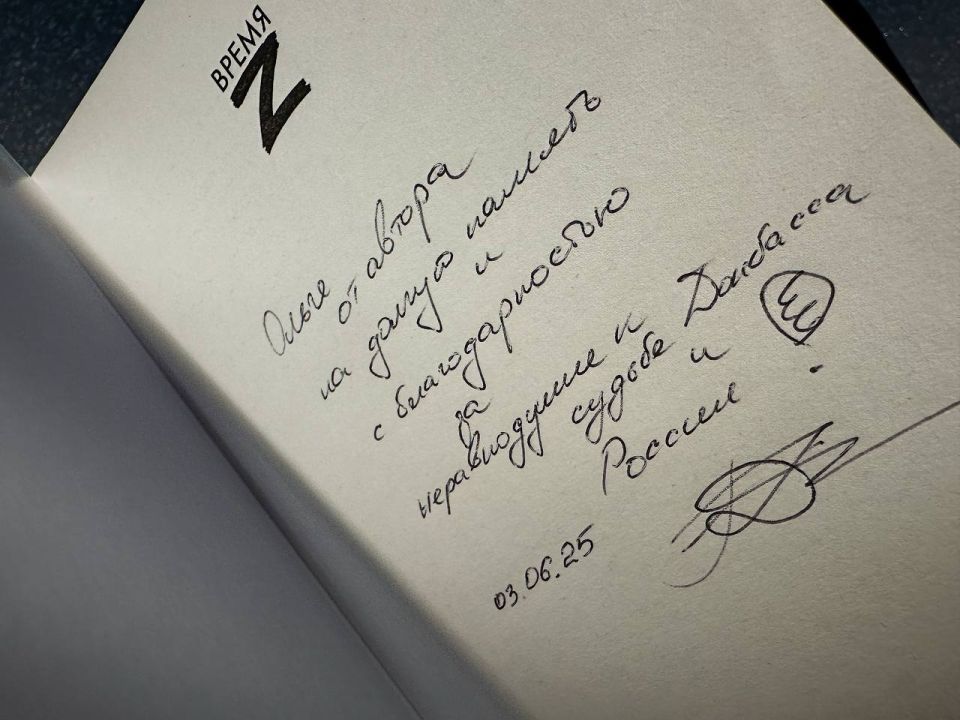 ВРЕМЯ
Z
Ольге
от автора
на долгую память
и
с благодарностью
за
неравнодушие к
судьбе Донбасса
и
России!
03.06.25